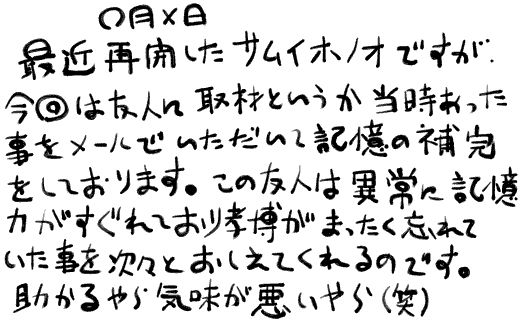 〇月×日
最近再開したサムイホノオですが、
今回は友人に取材というか当時あった
事をメールでいただいて記憶の補完
をしております。この友人は異常に記憶
力がすぐれており孝博がまったく忘れて
いた事を次々とおしえてくれるのです。
助かるやら気味が悪いやら(笑)